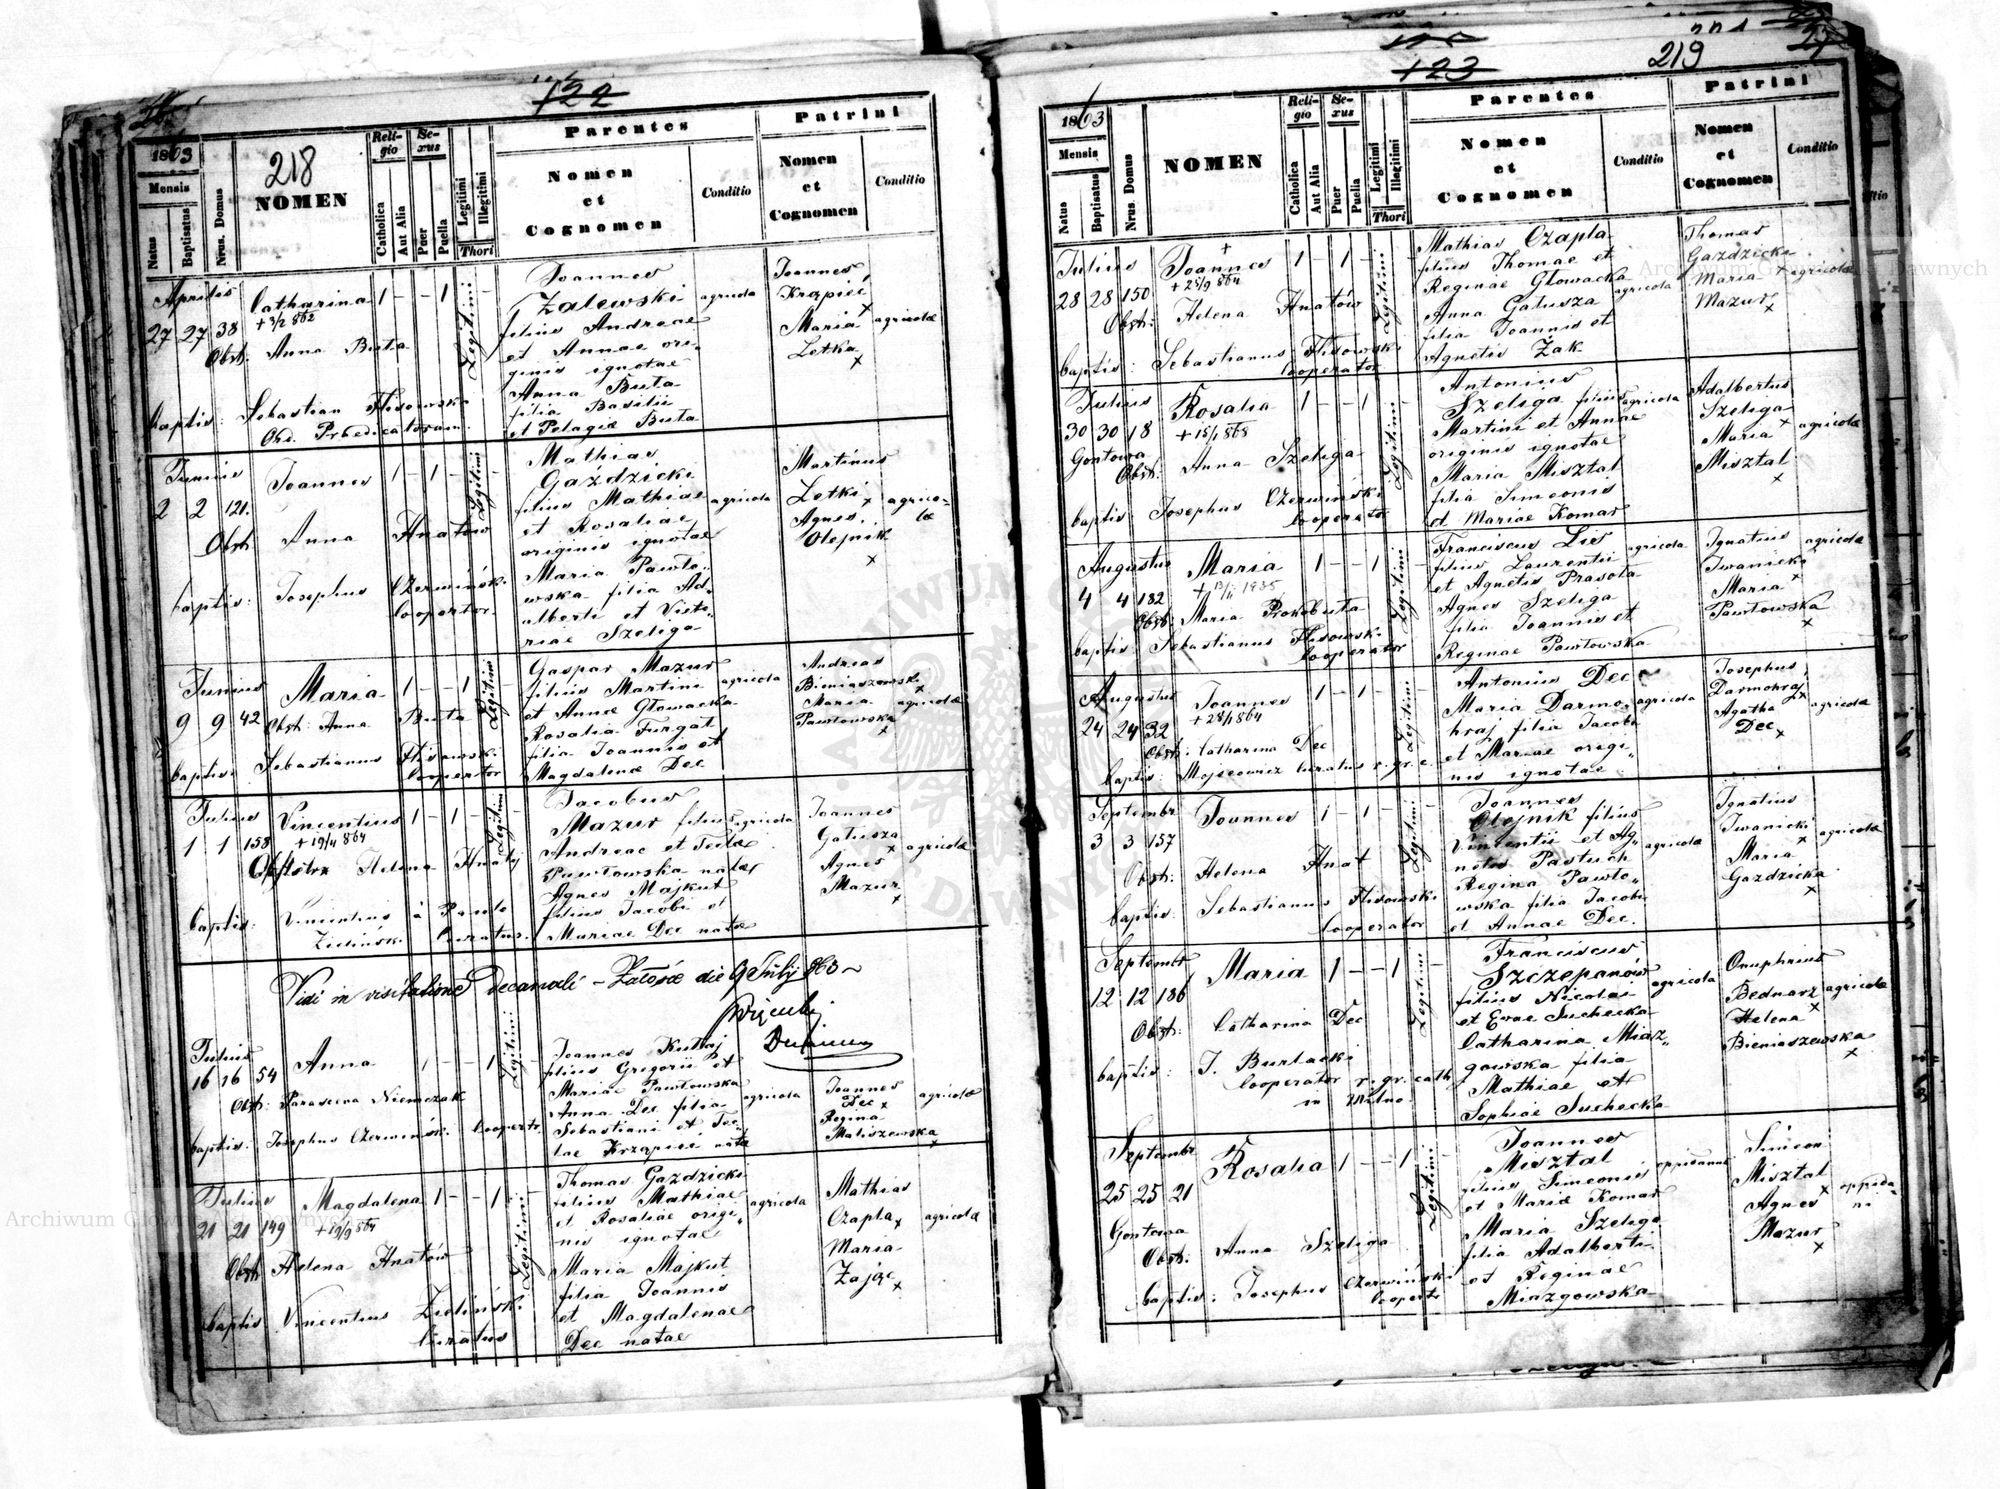 122
218
1863
Mensis
Natus
Baptisatus
Nrus. Domus
NOMEN
Religio
Catholica
Aut Alia
Sexus
Puer
Puella
Legitimi
Illegitimi
Thori
Parentes
Nomen
et
Cognomen
Conditio
Patrini
Nomen
et
Cognomen
Conditio
Aprilis
27 27 38
Catharina 1 — — 1 —
+ 3/2 862
Obst: Anna Buta
baptis: Sebastian Flisowski
Ord. Predicatorum
Legitimi
Joannes
Zalewski
filius Andreae
et Annae ori-
ginis ignotae
Anna Buta
filia Basilii
et Pelagiae Buta
agricola
Joannes
Krąpiec
Maria
Letka
agricolae
Junius
2 2 121.
Joannes 1 — 1 —
Obst: Anna Hnatów
baptis: Josephus Czerwiński
Cooperator.
Legitimi
Mathias
Gaździcki
filius Mathiae
et Rosaliae
originis ignotae
Maria Pawło-
wska filia Ad-
alberti et Victo-
riae Szeliga
agricola
Martinus
Letki
Agnes
Olejnik
agrico-
lae
Junius
9 9 42
Maria 1 — — 1 —
Obst: Anna Buta
baptis: Sebastianus Flisowski
Cooperator
Legitimi
Gaspar Mazur
filius Martini
et Annae Głowacka
Rosalia Furgał
filia Joannis et
Magdalenae Dec
agricola
Andreas
Bieniaszewski
Maria
Pawłowska
agricolae
Julius
1 1 158
Vincentius 1 — 1 —
+ 19/4 864
Obstetrx Helena Hnatów
baptis: Vincentius à Paulo
Zieliński Curatus.
Legitimi
Jacobus
Mazur filius
Andreae et Teclae
Pawłowska natae
Agnes Majkut
filius Jacobi et
Mariae Dec natae
agricola
Joannes
Gałusza
Agnes
Mazur
agricolae
Vidi in visitatione decanali — Załoźce die 9 Julij 863
Decanus
Julius
16 16 54
Anna 1 — — 1 —
Obst: Parascena Niemczak
baptis: Josephus Czerwiński Coopertr.
Legitimi
Joannes Kutaj
filius Gregorii et
Mariae Pawłowska
Anna Dec filia
Sebastiani et Tec-
lae Krząpiec nata
agricola
Joannes
Dec
Regina
Maliszewska
agricolae
Julius
21 21 149
Magdalena 1 — — 1 —
+ 19/9 864
Obst: Helena Hnatów
baptis: Vincentius Zieliński
Curatus
Legitimi
Thomas Gazdzicki
filius Mathiae
et Rosaliae origi-
nis ignotae
Maria Majkut
filia Joannis
et Magdalenae
Dec natae
agricola
Mathias
Czapla
Maria
Zając
agricolae
123
219
1863
Mensis
Natus
Baptisatus
Nrus. Domus
NOMEN
Religio
Catholica
Aut Alia
Sexus
Puer
Puella
Legitimi
Illegitimi
Thori
Parentes
Nomen
et
Cognomen
Conditio
Patrini
Nomen
et
Cognomen
Conditio
Julius
28 28 150
Joannes 1 — 1 —
+ 25/9 864
Obst: Helena Hnatów
baptis: Sebastianus Flisowski
Cooperator
Legitimi
Mathias Czapla
filius Thomae et
Reginae Głowacka
Anna Gałusza
filia Joannis et
Agnetis Żak
agricola
Thomas
Gazdzicki
Maria
Mazur
agricolae
Julius
30 30 18
Gontowa
Rosalia 1 — — 1 —
Obst: Anna Szeliga
baptis: Josephus Czerwiński
Cooperator
Legitimi
Antonius
Szeliga filius
Martini et Annae
originis ignotae
Maria Misztal
filia Simeonis
et Mariae Komar
agricola
Adalbertus
Szeliga
Maria
Misztal
agricolae
Augustus
4 4 182
Maria 1 — — 1 —
Obst: Maria Prokobuta
baptis: Sebastianus Flisowski
Cooperator
Legitimi
Franciscus Lis
filius Laurentii
et Agnetis Prasoła
Agnes Szeliga
filia Joannis et
Reginae Pawłowska
agricola
Ignatius
Iwanicki
Maria
Pawłowska
agricolae
Augustus
24 24 32
Joannes 1 — 1 —
+ 28/1 864
Obst: Catharina Dec
baptis: Mojseowicz Curatus r. gr. c.
Legitimi
Antonius Dec
Maria Darmo-
hraj filia Jacobi
et Mariae origi-
nis ignotae
agricola
Josephus
Darmohraj
Agatha
Dec
agricolae
Septembr
3 3 157
Joannes 1 — 1 —
Obst: Helena Hnat
baptis: Sebastianus Flisowski
Cooperator
Legitimi
Joannes
Olejnik filius
Vincentii et Ag-
netis Pastuch
Regina Pawło-
wska filia Jacobi
et Annae Dec.
agricola
Ignatius
Iwanicki
Maria
Gazdzicka
agricolae
Septembr
12 12 186
Maria 1 — — 1 —
Obst: Catharina Dec
baptis: J. Burlacki
Cooperator r. gr. cath
in Milno
Legitimi
Franciscus
Szczepanów
filius Nicolai
et Evae Suchecka
Catharina Miaz-
gowska filia
Mathiae et
Sophiae Suchecka
agricola
Onuphrius
Bednarz
Helena
Bieniaszewska
agricolae
Septembr
25 25 21
Gontowa
Rosalia 1 — — 1 —
Obst: Anna Szeliga
baptis: Josephus Czerwiński
Coopertr
Legitimi
Joannes
Misztal
filius Simeonis
et Mariae Komar
Maria Szeliga
filia Adalberti
et Reginae
Miazgowska
oppidanus
Simeon
Misztal
Agnes
Mazur
oppida-
ni
Archiwum Główne Akt Dawnych